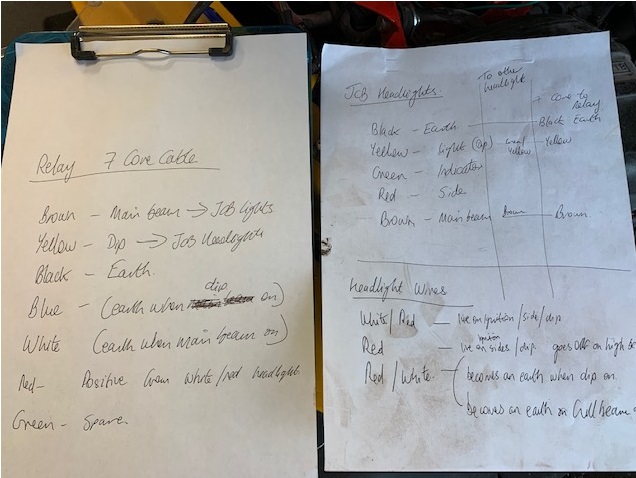 Relay 7 Core Cable
Brown – Main beam → JCB lights
Yellow – Dip → JCB Headlights
Black – Earth.
Blue – (earth when dip on)
White (earth when main beam on)
Red – Positive from white/red headlight
Green – Spare
JCB Headlights:
To other headlight
7 Core to Relay
Black – Earth Black Earth
Yellow – Light (dip) Yellow Yellow
Green – Indicator
Red – Side
Brown – Main beam Brown Brown
Headlight Wires
White/Red – live on ignition/side/dip
Red – live on ignition sides/dip. goes off on high
Red/White – becomes an earth when dip on.
becomes an earth on full beam